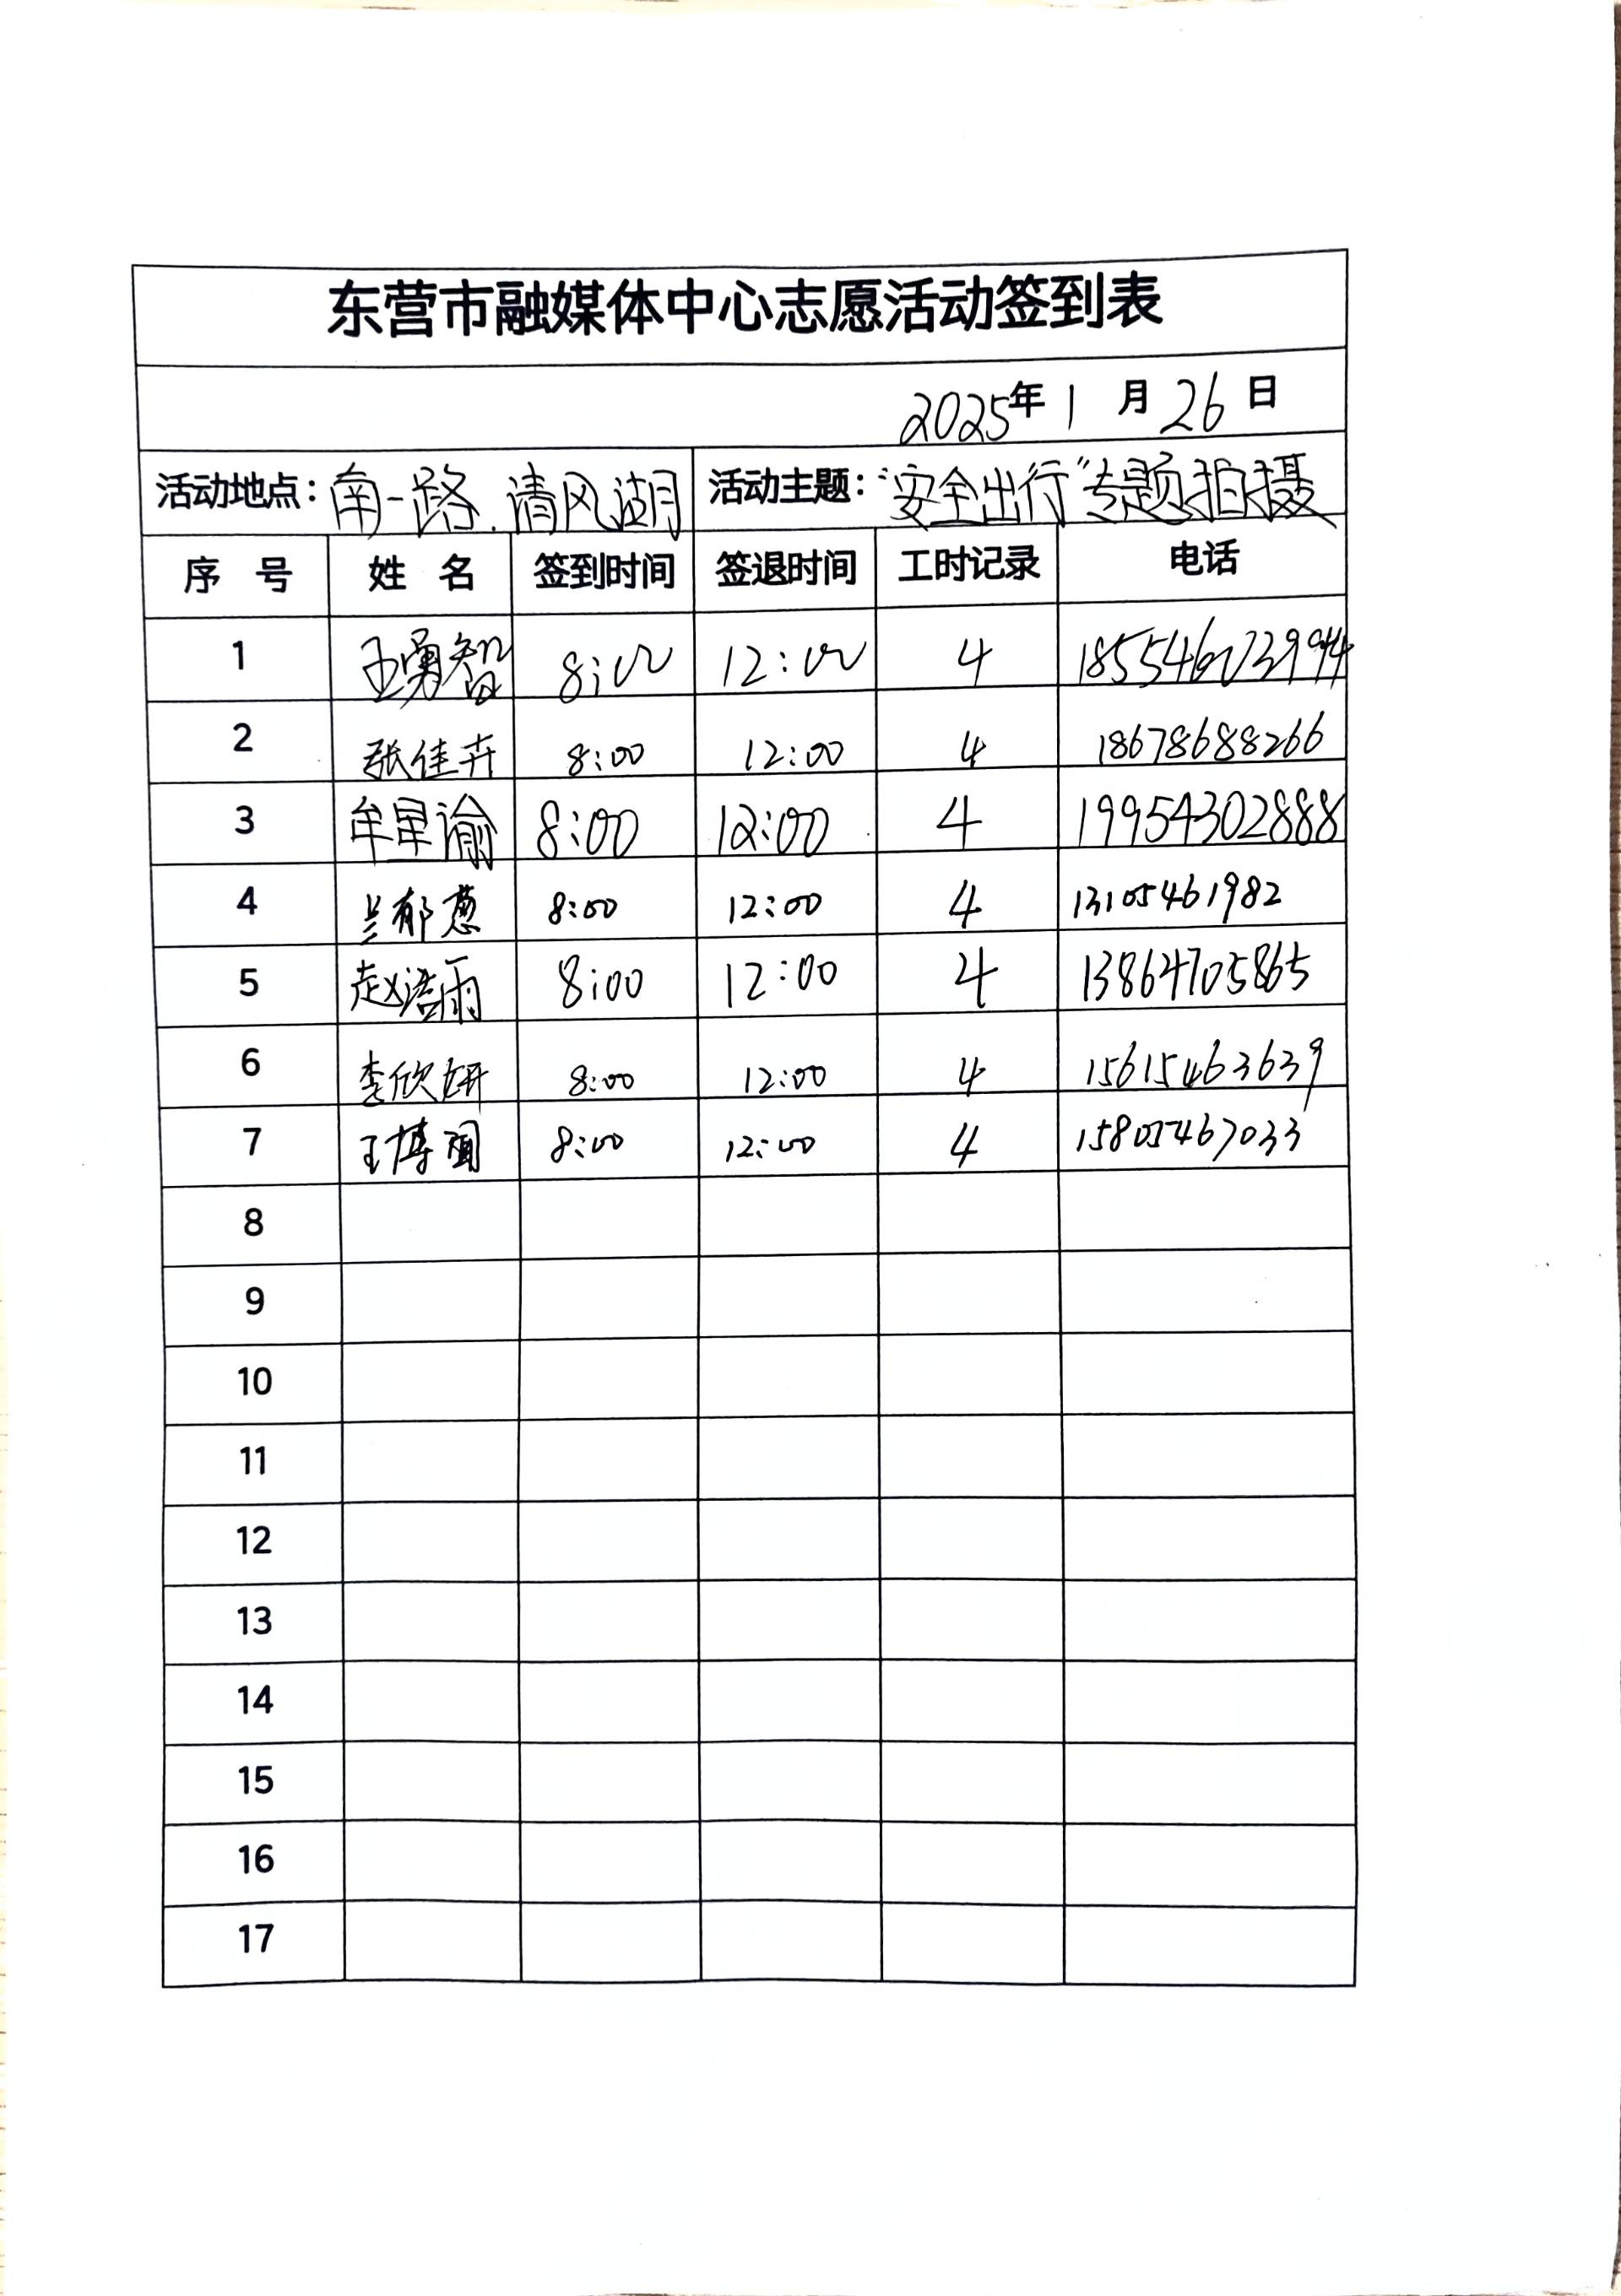 东营市融媒体中心志愿活动签到表
2025年 1 月 26 日
活动地点：南一路.清风湖 活动主题：“安全出行”专题拍摄
序 号 姓 名 签到时间 签退时间 工时记录 电话
1 王勇智 8:00 12:00 4 18554603994
2 张佳卉 8:00 12:00 4 18678688266
3 牟星谕 8:00 12:00 4 19954302888
4 兰郁葱 8:00 12:00 4 13105461982
5 赵浩雨 8:00 12:00 4 13864705865
6 李欣妍 8:00 12:00 4 15615463639
7 王博 8:00 12:00 4 15805467033
8
9
10
11
12
13
14
15
16
17